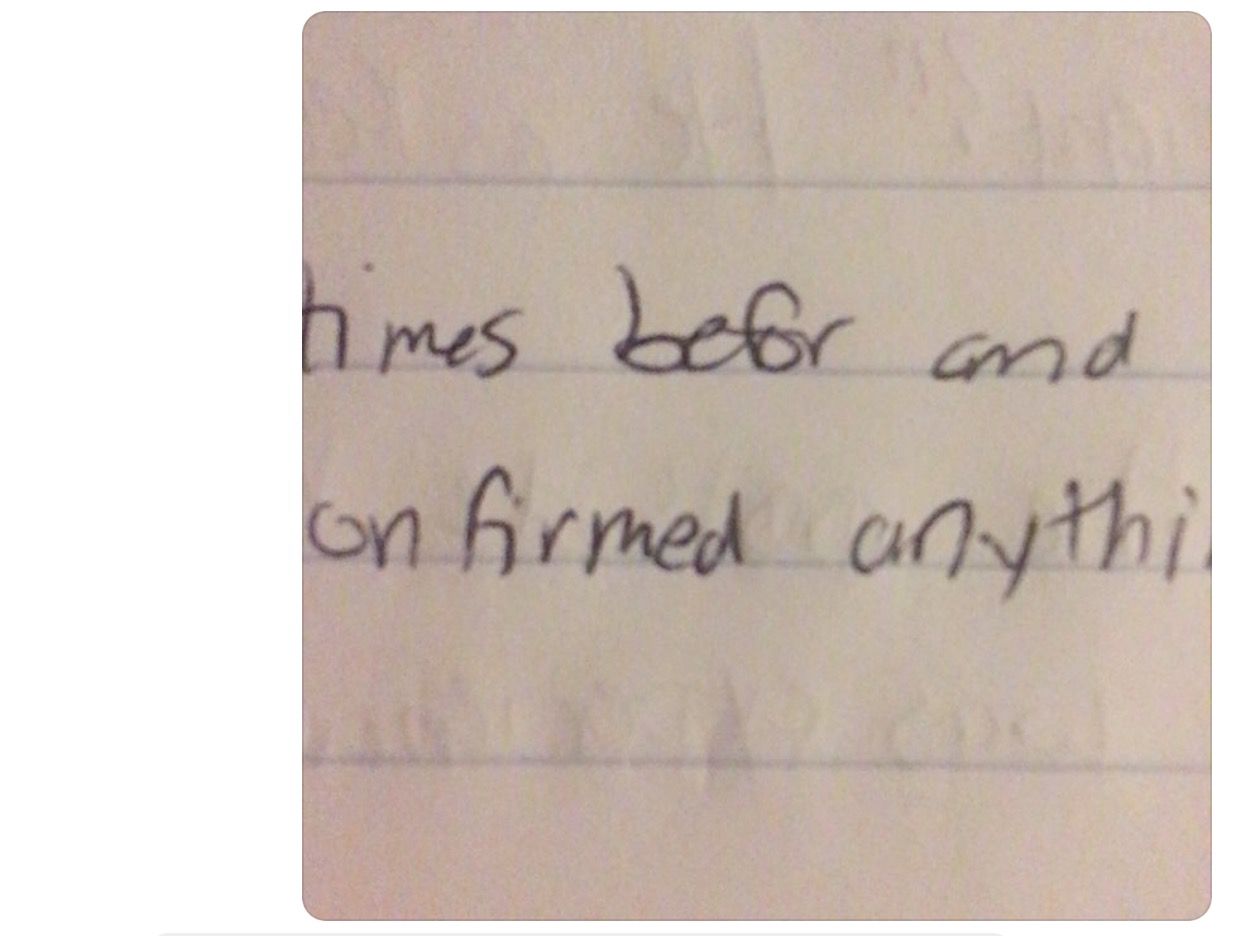 times befor and
onfirmed anythi